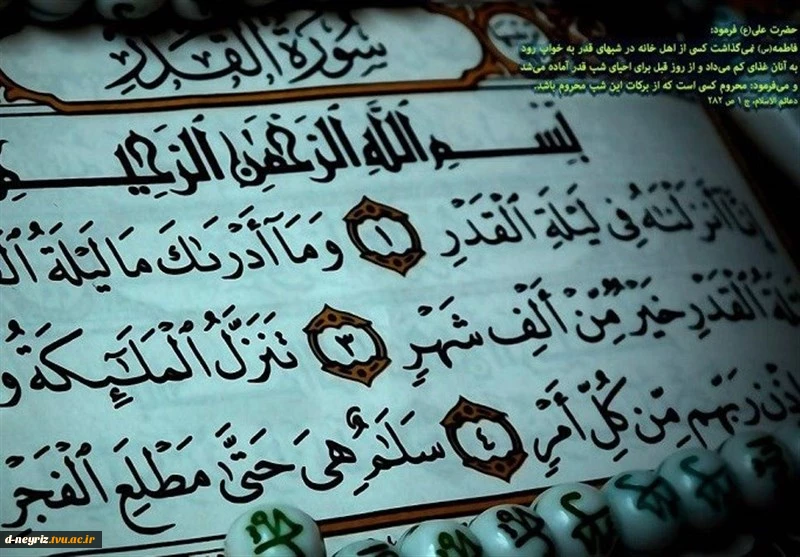 حضرت علی(ع) فرمود:
فاطمه(س) نمی‌گذاشت کسی از اهل خانه در شبهای قدر به خواب رود
به آنان غذای کم می‌داد و از روز قبل برای احیای شب قدر آماده می‌شد
و می‌فرمود: محروم کسی است که از برکات این شب محروم باشد.
دعائم الاسلام، ج ۱ ص ۲۸۲
سُورَةُ القَدْرِ
بِسْمِ اللَّهِ الرَّحْمَٰنِ الرَّحِيمِ
إِنَّا أَنزَلْنَٰهُ فِي لَيْلَةِ ٱلْقَدْرِ ١ وَمَآ أَدْرَىٰكَ مَا لَيْلَةُ
ٱلْقَدْرِ خَيْرٌ مِّنْ أَلْفِ شَهْرٍ ٣ تَنَزَّلُ ٱلْمَلَٰٓئِكَةُ
رَبِّهِم مِّن كُلِّ أَمْرٍ ٤ سَلَٰمٌ هِيَ حَتَّىٰ مَطْلَعِ ٱلْفَجْرِ
d-neyriz.tvu.ac.ir